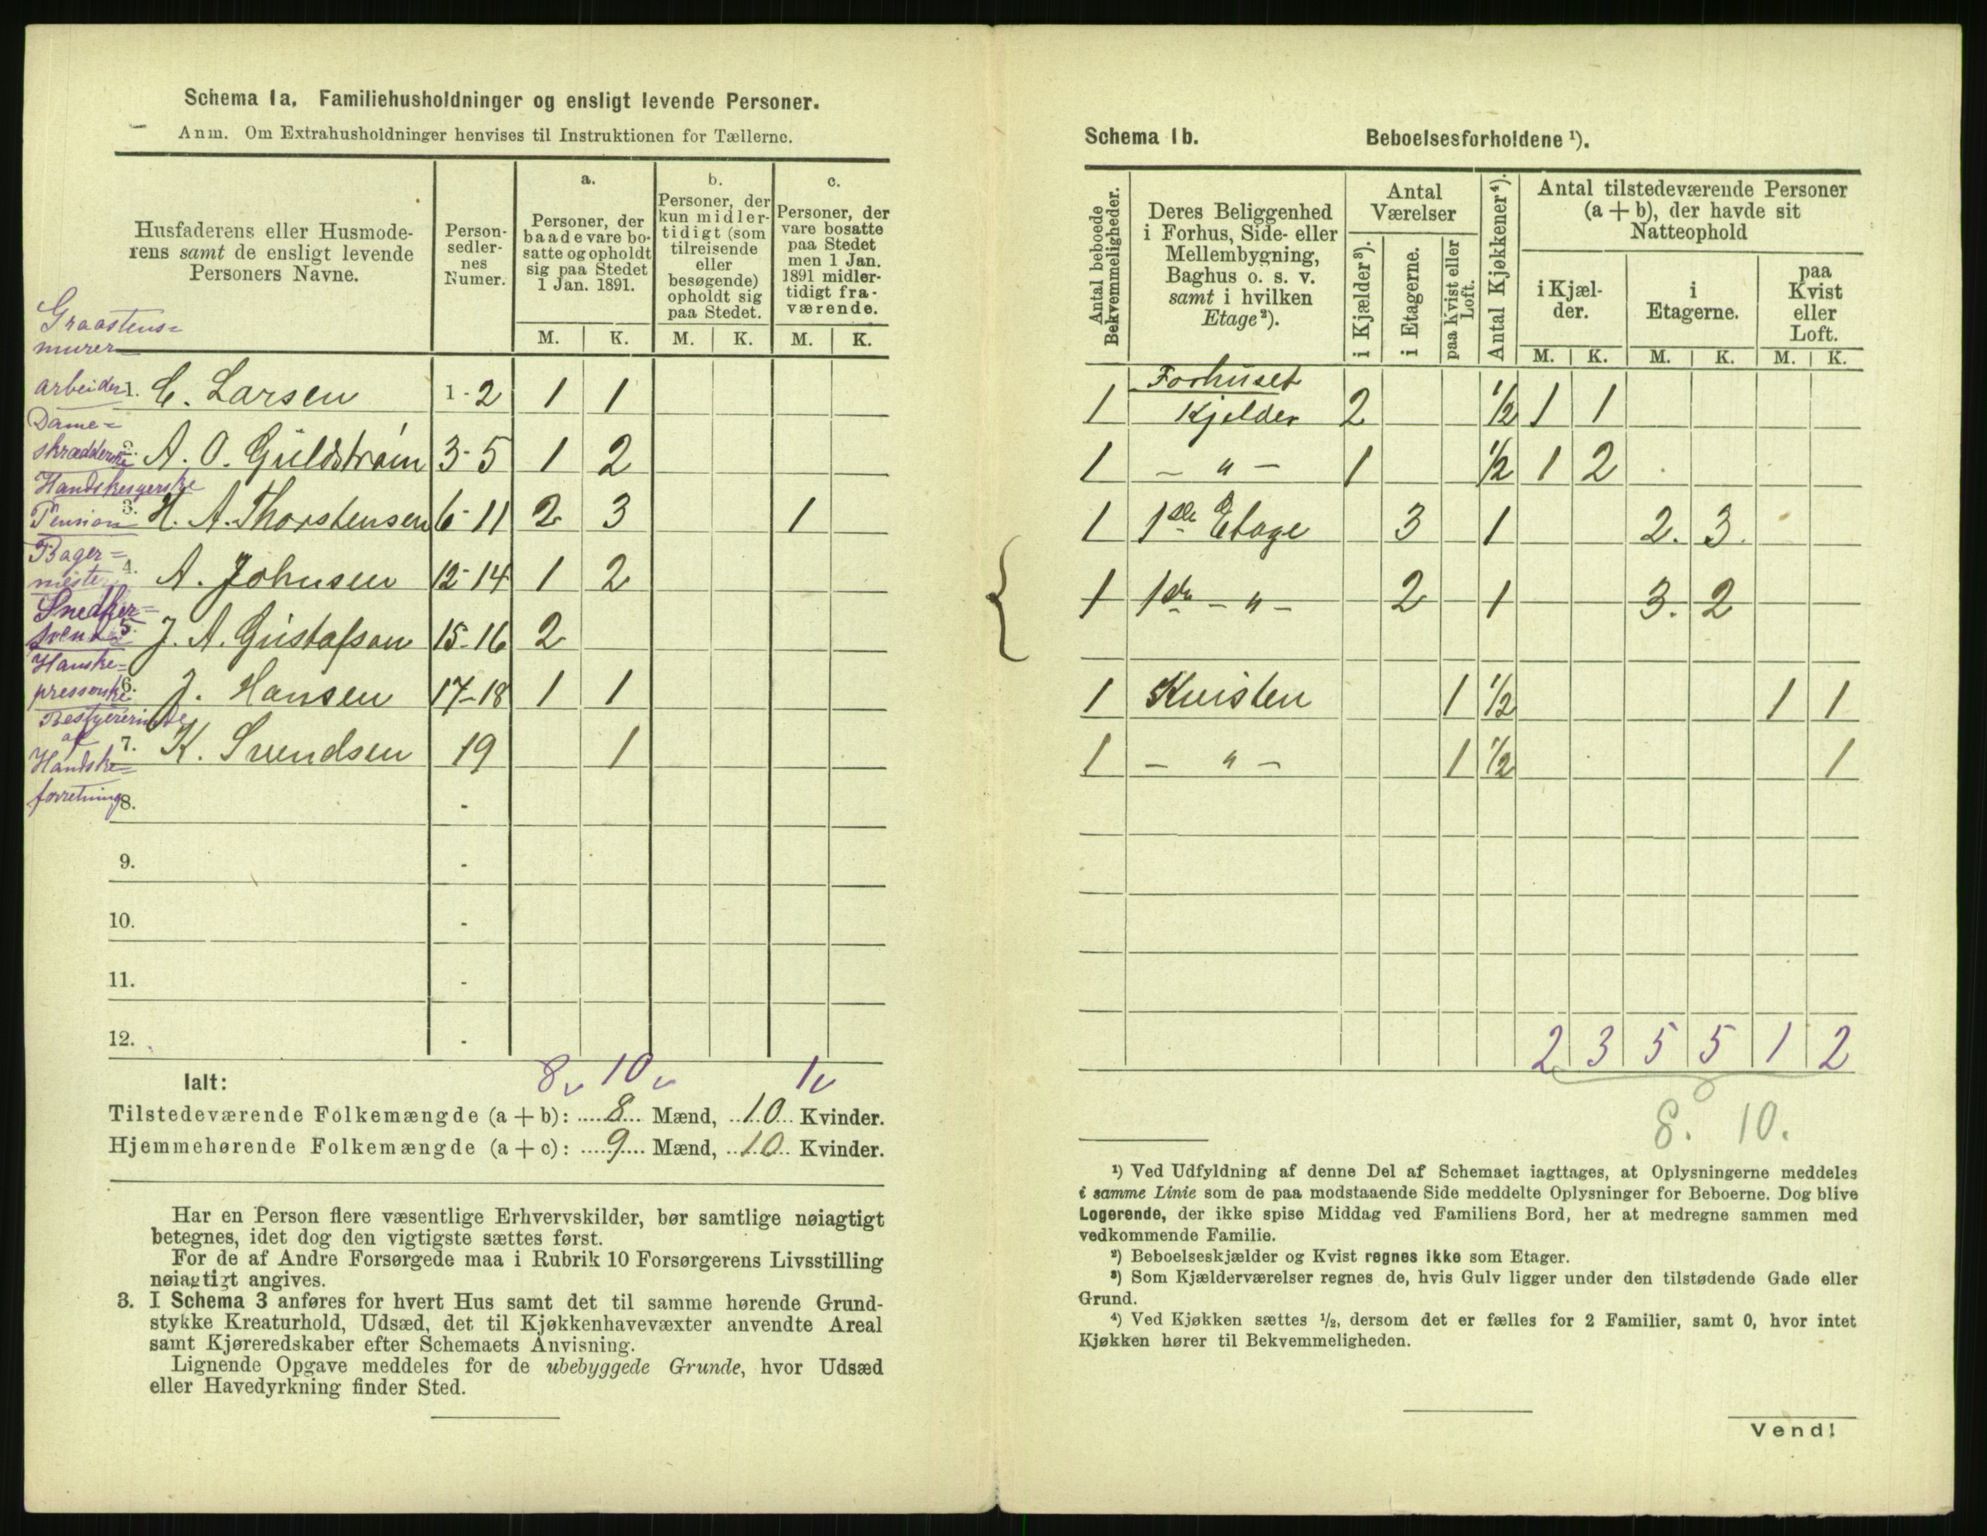 Schema 1a. Familiehusholdninger og ensligt levende Personer.
Anm. Om Extrahusholdninger henvises til Instruktionen for Tællerne.
Husfaderens eller Husmode-
rens samt de ensligt levende
Personers Navne.
Person-
sedler-
nes
Numer.
a.
Personer, der
baade vare bo-
satte og opholdt
sig paa Stedet
1 Jan. 1891.
b.
Personer, der
kun midler-
tidigt (som
tilreisende
eller
besøgende)
opholdt sig
paa Stedet.
c.
Personer, der
vare bosatte
paa Stedet
men 1 Jan.
1891 midler-
tidigt fra-
værende.
M. K. M. K. M. K.
Graastens=
murer
arbeider 1. C. Larsen 1-2 1 1
Dame=
skrædderske 2. A. O. Güldstrøm 3-5 1 2
Handskesyerske
Pension 3. H. A. Thorstensen 6-11 2 3 1
Bager=
meste 4. A. Johnsen 12-14 1 2
Snedker=
svend 5. J. A. Gustafson 15-16 2
Hanske=
presserske 6. J. Hansen 17-18 1 1
Bestyrerinde
af 7. K. Svendsen 19 1
Handske=
forretning 8. -
9. -
10. -
11. -
12. -
8 v 10 v 1 v
Ialt:
Tilstedeværende Folkemængde (a + b): 8 Mænd, 10 Kvinder.
Hjemmehørende Folkemængde (a + c): 9 Mænd, 10 Kvinder.
Har en Person flere væsentlige Erhvervskilder, bør samtlige nøiagtigt
betegnes, idet dog den vigtigste sættes først.
For de af Andre Forsørgede maa i Rubrik 10 Forsørgerens Livsstilling
nøiagtigt angives.
3. I Schema 3 anføres for hvert Hus samt det til samme hørende Grund-
stykke Kreaturhold, Udsæd, det til Kjøkkenhavevæxter anvendte Areal
samt Kjøreredskaber efter Schemaets Anvisning.
Lignende Opgave meddeles for de ubebyggede Grunde, hvor Udsæd
eller Havedyrkning finder Sted.
Schema 1b. Beboelsesforholdene ¹).
Antal beboede
Bekvemmeligheder.
Deres Beliggenhed
i Forhus, Side- eller
Mellembygning,
Baghus o. s. v.
samt i hvilken
Etage²).
Antal
Værelser
i Kjælder³).
i Etagerne.
paa Kvist eller
Loft.
Antal Kjøkkener⁴).
Antal tilstedeværende Personer
(a + b), der havde sit
Natteophold
i Kjæl-
der.
i
Etagerne.
paa
Kvist
eller
Loft.
M. K. M. K. M. K.
Forhuset
1 Kjelder 2 1/2 1 1
1 – „ – 1 1/2 1 2
1 1ste Etage 3 1 2. 3.
1 1ste – „ – 2 1 3. 2
1 Kvisten 1 1/2 1 1
1 – „ – 1 1/2 1
2 3 5 5 1 2
8. 10.
¹) Ved Udfyldning af denne Del af Schemaet iagttages, at Oplysningerne meddeles
i samme Linie som de paa modstaaende Side meddelte Oplysninger for Beboerne. Dog blive
Logerende, der ikke spise Middag ved Familiens Bord, her at medregne sammen med
vedkommende Familie.
²) Beboelseskjælder og Kvist regnes ikke som Etager.
³) Som Kjælderværelser regnes de, hvis Gulv ligger under den tilstødende Gade eller
Grund.
⁴) Ved Kjøkken sættes ½, dersom det er fælles for 2 Familier, samt 0, hvor intet
Kjøkken hører til Bekvemmeligheden.
Vend!